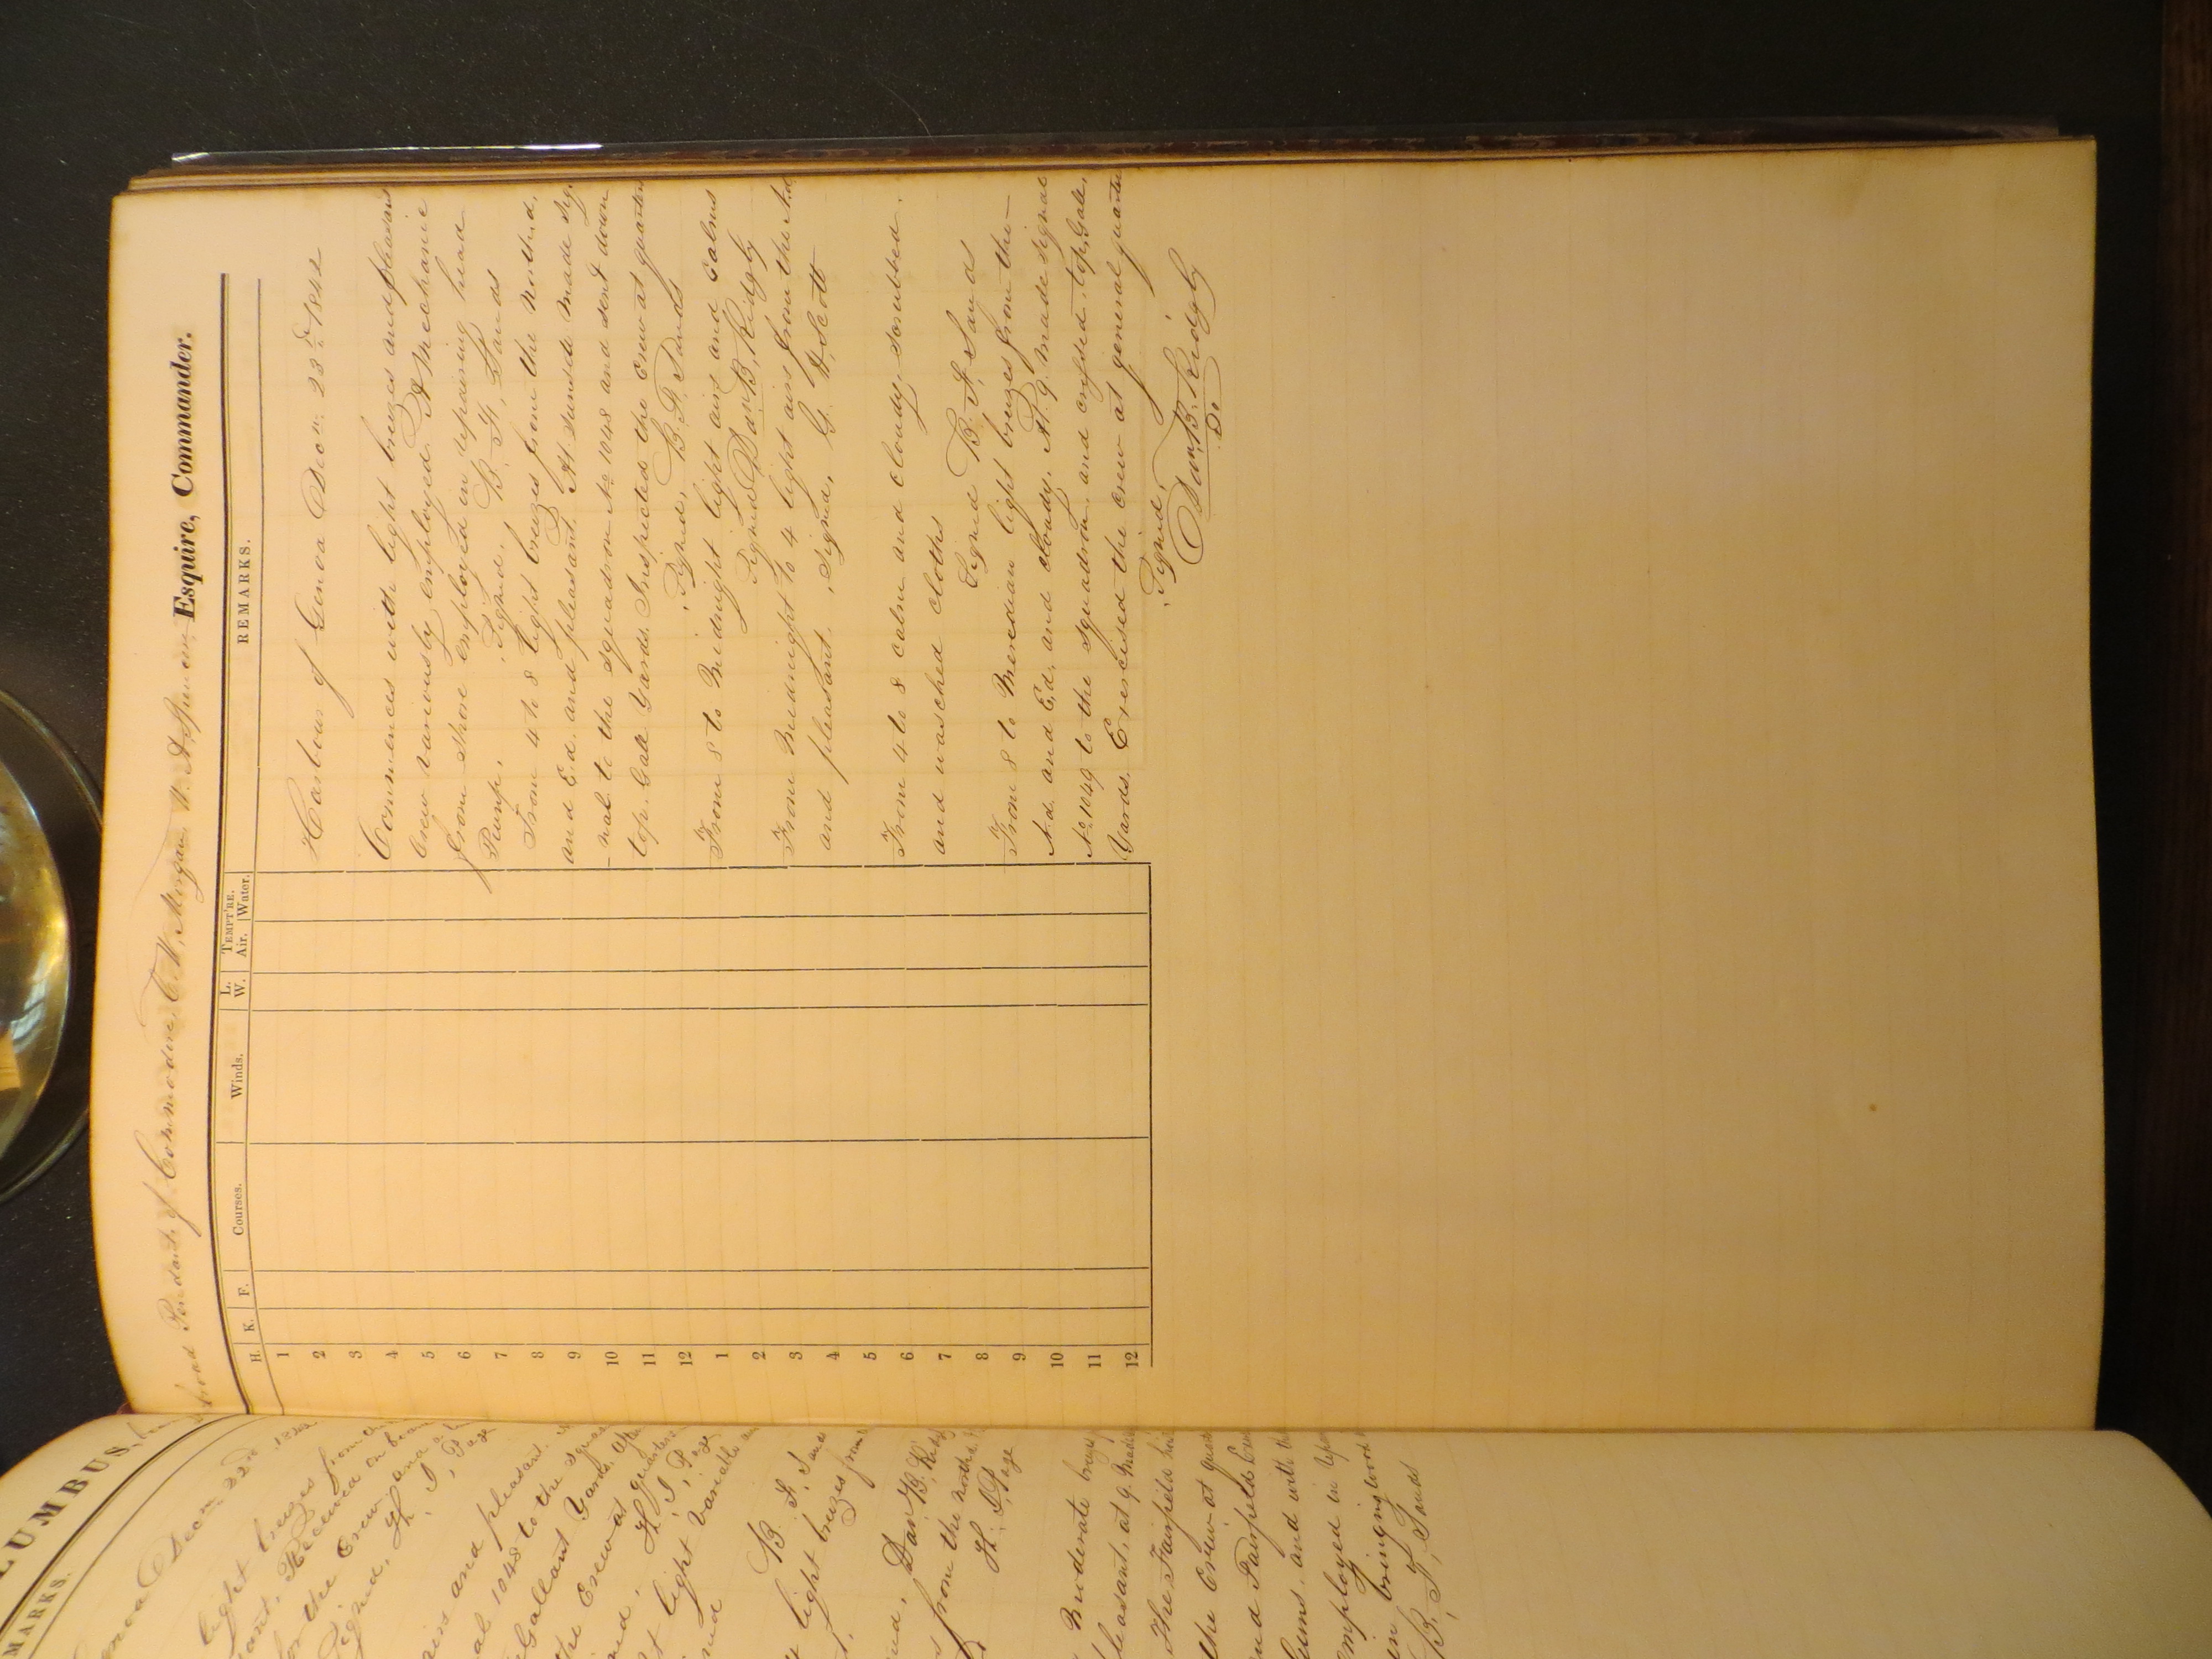 LUMBUS,
MARKS.
Genoa Decm 22nd 1842
light breezes from
Received on board
the Crew
Signed, H. J. Page
airs and pleasant.
al 1048 to the squad
Gallant Yards. At
the Crew at quarters
H. J. Page
light variable
B. F. Sands
light breezes from
Dan B. Ridg
from the North
H. J. Page
Moderate breezes
pleasant, at 9. Made
The Fairfield
the Crew at quart
Fairfield
Guns. and with the
employed in
in bringing
B. F. Sands
broad Pendant of Commodore C. W. Morgan, W. A. Spencer Esquire, Commander.
H. K. F. Courses. Winds. L. W. TEMPT'RE. Air. Water. REMARKS.
1
2
3
4
5
6
7
8
9
10
11
12
1
2
3
4
5
6
7
8
9
10
11
12
Harbour of Genoa Decm. 23d. 1842
Commences with light breezes and pleasant
Crew variously employed. A Mechanic
from shore employed in repairing head
Pump. Signed, B. F. Sands
From 4 to 8 light breezes from the North.d.
and E.d. and pleasant. At sunset made sig
-nal to the squadron No 1048 and sent down
top. Gall. Yards. Inspected the Crew at quarters
Signed, B. F. Sands
From 8 to Midnight light airs and Calms
Signed Dan B. Ridgly
From Midnight to 4 light airs from the N.d
and pleasant. Signed, G. H. Scott
From 4 to 8 calm and cloudy. scrubbed.
and wasched cloths
Signed B. F. Sands
From 8 to Meredian light breezes from the-
N.d. and E.d. and cloudy. At 9. made signal
No 1049 to the squadron. and crossed. top. Gall.
Yards. Exercised the crew at general quarters
Signed,
Dan B. Ridgly